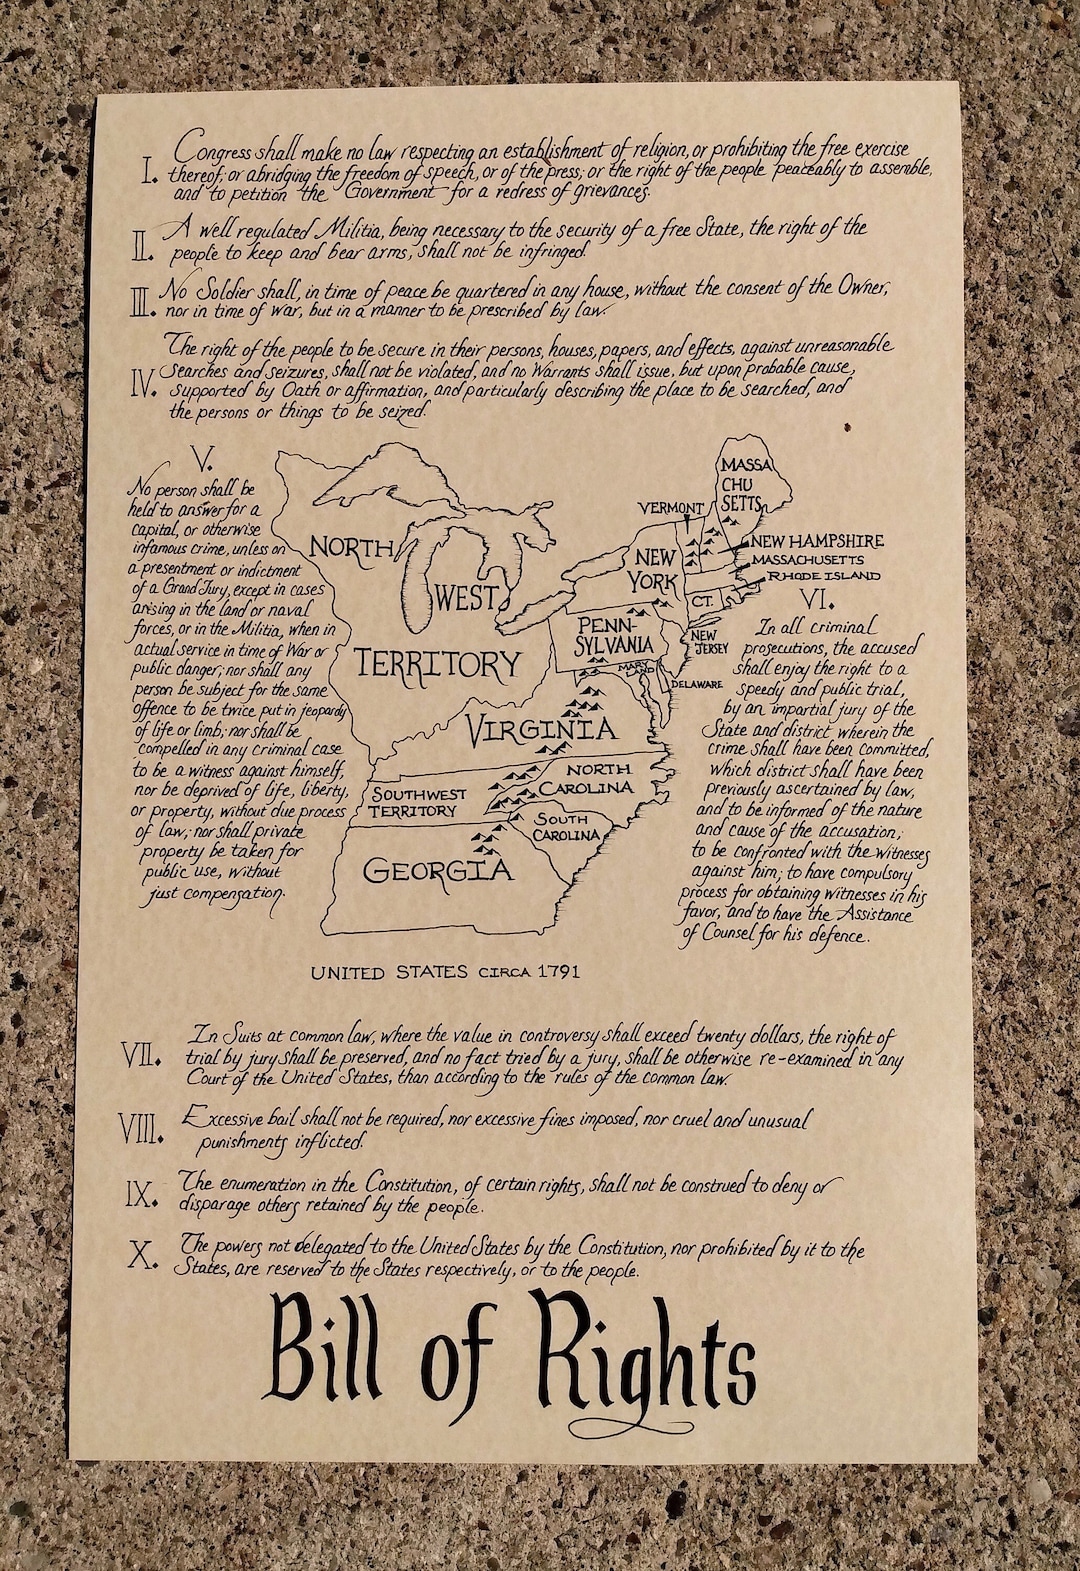 I. Congress shall make no law respecting an establishment of religion, or prohibiting the free exercise
thereof; or abridging the freedom of speech, or of the press; or the right of the people peaceably to assemble,
and to petition the Government for a redress of grievances.
II. A well regulated Militia, being necessary to the security of a free State, the right of the
people to keep and bear arms, shall not be infringed.
III. No Soldier shall, in time of peace be quartered in any house, without the consent of the Owner,
nor in time of war, but in a manner to be prescribed by law.
IV. The right of the people to be secure in their persons, houses, papers, and effects, against unreasonable
searches and seizures, shall not be violated, and no Warrants shall issue, but upon probable cause,
supported by Oath or affirmation, and particularly describing the place to be searched, and
the persons or things to be seized.
V.
No person shall be
held to answer for a
capital, or otherwise
infamous crime, unless on
a presentment or indictment
of a Grand Jury, except in cases
arising in the land or naval
forces, or in the Militia, when in
actual service in time of War or
public danger; nor shall any
person be subject for the same
offence to be twice put in jeopardy
of life or limb; nor shall be
compelled in any criminal case
to be a witness against himself,
nor be deprived of life, liberty,
or property, without due process
of law; nor shall private
property be taken for
public use, without
just compensation.
MASSA
CHU
SETTS
VERMONT
NEW HAMPSHIRE
MASSACHUSETTS
RHODE ISLAND
NORTH
WEST
TERRITORY
NEW
YORK
CT.
PENN-
SYLVANIA
NEW
JERSEY
MARY
LAND
DELAWARE
VIRGINIA
NORTH
CAROLINA
SOUTHWEST
TERRITORY
SOUTH
CAROLINA
GEORGIA
UNITED STATES CIRCA 1791
VI.
In all criminal
prosecutions, the accused
shall enjoy the right to a
speedy and public trial,
by an impartial jury of the
State and district wherein the
crime shall have been committed,
which district shall have been
previously ascertained by law,
and to be informed of the nature
and cause of the accusation;
to be confronted with the witnesses
against him; to have compulsory
process for obtaining witnesses in his
favor, and to have the Assistance
of Counsel for his defence.
VII. In Suits at common law, where the value in controversy shall exceed twenty dollars, the right of
trial by jury shall be preserved, and no fact tried by a jury, shall be otherwise re-examined in any
Court of the United States, than according to the rules of the common law.
VIII. Excessive bail shall not be required, nor excessive fines imposed, nor cruel and unusual
punishments inflicted.
IX. The enumeration in the Constitution, of certain rights, shall not be construed to deny or
disparage others retained by the people.
X. The powers not delegated to the United States by the Constitution, nor prohibited by it to the
States, are reserved to the States respectively, or to the people.
Bill of Rights